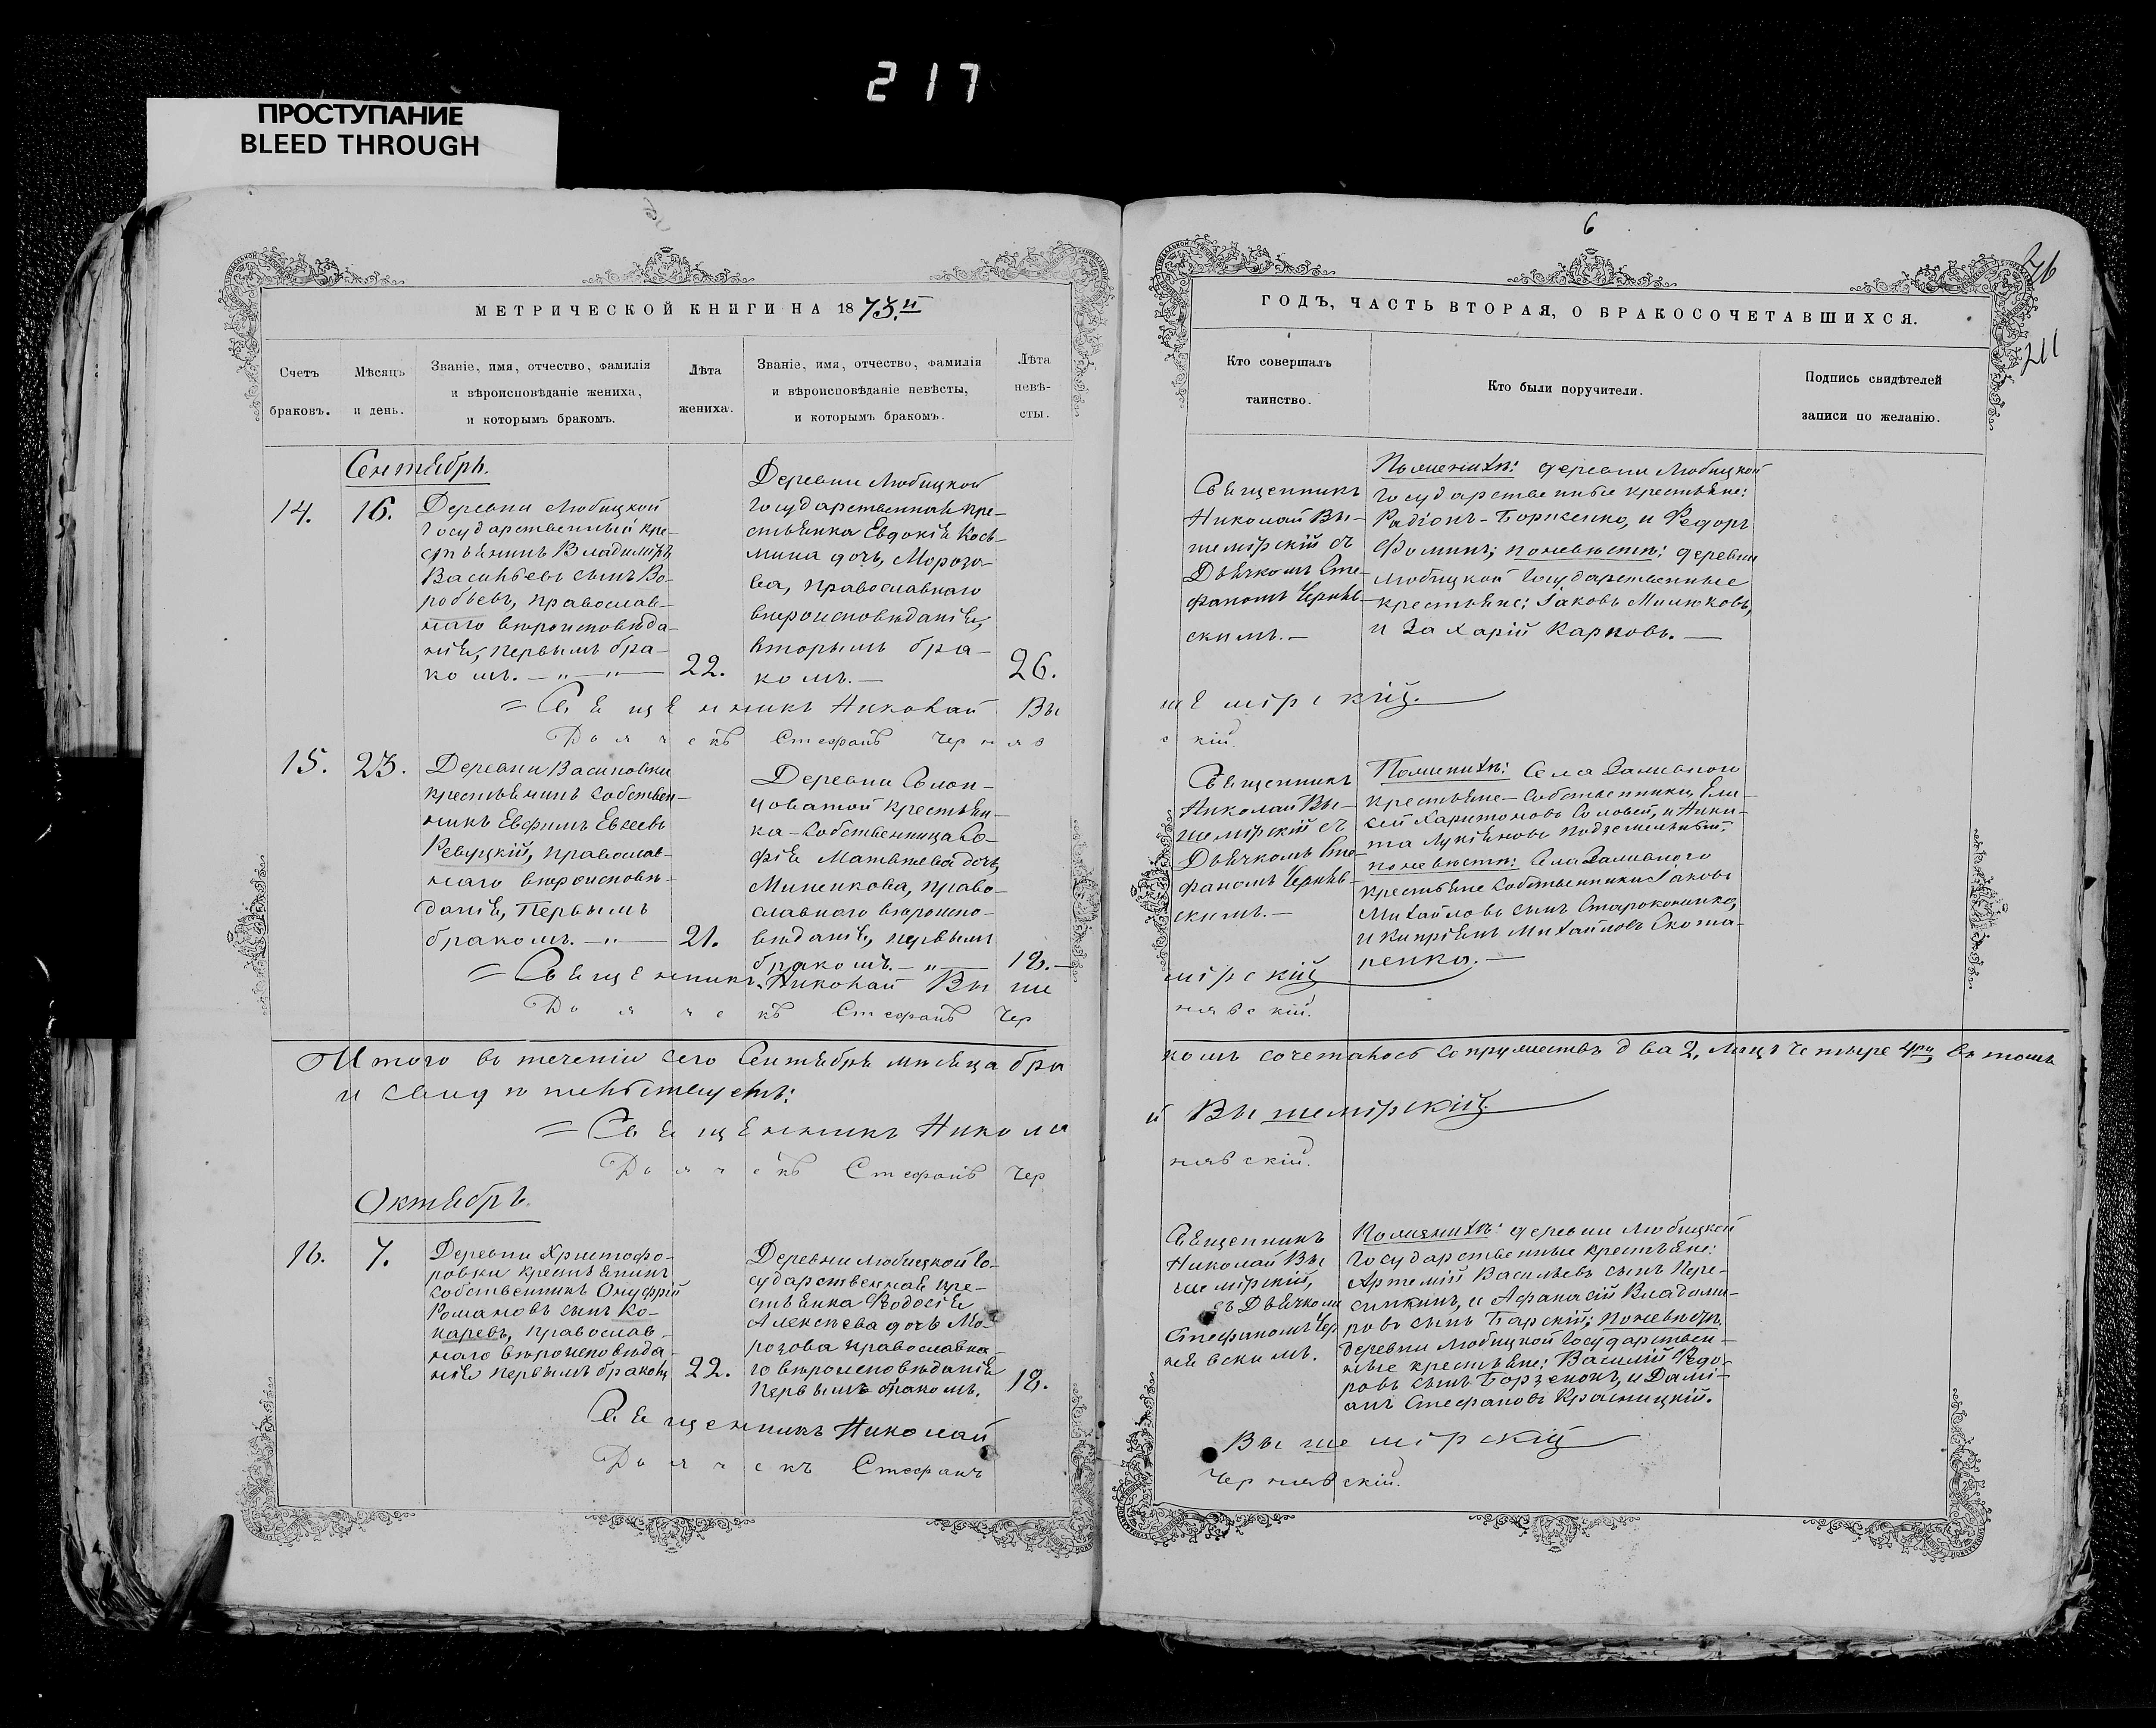 217
ПРОСТУПАНИЕ
BLEED THROUGH
6
76
211
МЕТРИЧЕСКОЙ КНИГИ НА 1873.й
ГОДЪ, ЧАСТЬ ВТОРАЯ, О БРАКОСОЧЕТАВШИХСЯ.
Счетъ
браковъ.
Мѣсяцъ
и день.
Званіе, имя, отчество, фамилія
и вѣроисповѣданіе жениха,
и которымъ бракомъ.
Лѣта
жениха.
Званіе, имя, отчество, фамилія
и вѣроисповѣданіе невѣсты,
и которымъ бракомъ.
Лѣта
невѣ-
сты.
Кто совершалъ
таинство.
Кто были поручители.
Подпись свидѣтелей
записи по желанію.
Сентябрь.
14.
16.
Деревни Любицкой
Государственный кре-
стьянинъ Владиміръ
Васильевъ сынъ Во-
робьевъ, православ-
наго вѣроисповѣда-
нія, первымъ бра-
комъ. — „ —
22.
Деревни Любицкой
Государственная кре-
стьянка Евдокія Кось-
мина дочь, Морозо-
ва, православнаго
вѣроисповѣданія,
вторымъ бра-
комъ. —
26.
Священникъ
Николай Вы-
шемірскій съ
Дьячкомъ Сте-
фаномъ Черняв-
скимъ. —
По женихѣ: деревни Любицкой
Государственные крестьяне:
Радіонъ Борисенко, и Федоръ
Фоминъ; по невѣстѣ: деревни
Любицкой Государственные
крестьяне: Іаковъ Милюковъ,
и Захарій Карповъ. —
= Священникъ Николай Вышемірскій.
Дьячекъ Стефанъ Чернявскій.
15.
23.
Деревни Васиновки
крестьянинъ собствен-
никъ Евфимъ Евсеевъ
Ревуцкій, православ-
наго вѣроисповѣ-
данія, Первымъ
бракомъ. — „ —
21.
Деревни Солон-
цоватой крестьян-
ка-собственница Со-
фія Матвѣева дочь,
Миненкова, право-
славнаго вѣроиспо-
вѣданія, первымъ
бракомъ. — „ —
18. —
Священникъ
Николай Вы-
шемірскій съ
Дьячкомъ Сте-
фаномъ Черняв-
скимъ. —
По женихѣ: Села Заливного
крестьяне-собственники, Ели-
сей Харитоновъ Соловей, и Ники-
та Лукьяновъ Подземельный;
по невѣстѣ: Села Заливного
крестьяне собственники Іаковъ
Михайловъ сынъ Староконенко,
и Кипріянъ Михайловъ Скома-
ренко. —
= Священникъ Николай Вышемірскій
Дьячекъ Стефанъ Чернявскій.
Итого въ теченіи сего Сентября мѣсяца бракомъ сочеталось супружествъ два 2, лицъ четыре 4ри, въ томъ
и свидѣтельствуемъ:
= Священникъ Николай Вышемірскій.
Дьячекъ Стефанъ Чернявскій.
Октябрь.
16.
7.
Деревни Христофо-
ровки крестьянинъ
собственникъ Онуфрій
Романовъ сынъ Ко-
каревъ, православ-
наго вѣроисповѣда-
нія первымъ бракомъ
22.
Деревни Любицкой Го-
сударственная кре-
стьянка Ѳеодосія
Алексѣева дочь Мо-
розова православна-
го вѣроисповѣданія
первымъ бракомъ.
18.
Священникъ
Николай Вы
шемірскій,
съ Дьячкомъ
Стефаномъ Чер
нявскимъ.
По женихѣ: деревни Любицкой
Государственные крестьяне:
Артемій Васильевъ сынъ Пере-
сипкинъ, и Афанасій Владими-
ровъ сынъ Барскій; по невѣстѣ
деревни Любицкой Государствен-
ные крестьяне: Василій Федо-
ровъ сынъ Борзенокъ, и Дамі-
анъ Стефановъ Красницкій.
Священникъ Николай Вышемірскій
Дьячекъ Стефанъ Чернявскій.